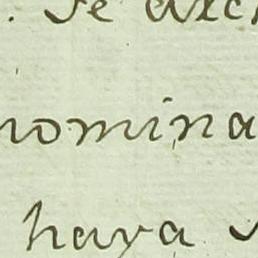 . Se
nomina
haya